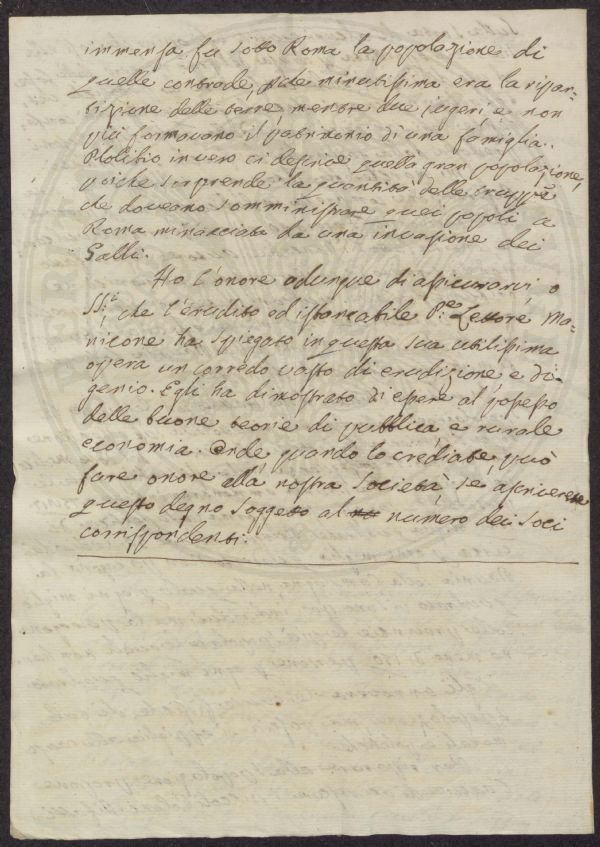 immensa fu sotto Roma la popolazione di
quelle contrade, che minutissima era la ripar-
tizione delle terre, mentre due jugeri e non
più formavano il patrimonio di una famiglia.
Polibio in vero ci descrive quella gran popolazione,
poiche sorprende la quantità delle truppe
che doveano somministrare quei popoli a
Roma minacciata da una invasione dei
Galli.
Ho l'onore adunque di assicurarvi o
SS:i che l'erudito ed istancabile P.re Lettore Ma-
nicone ha spiegato in questa sua utilissima
opera un corredo vasto di erudizione e di
genio. Egli ha dimostrato di essere al possesso
delle buone teorie di pubblica e rurale
economia. Onde quando lo crediate, può
fare onore alla nostra Società se ascriverete
questo degno soggetto al numero dei soci
corrispondenti.